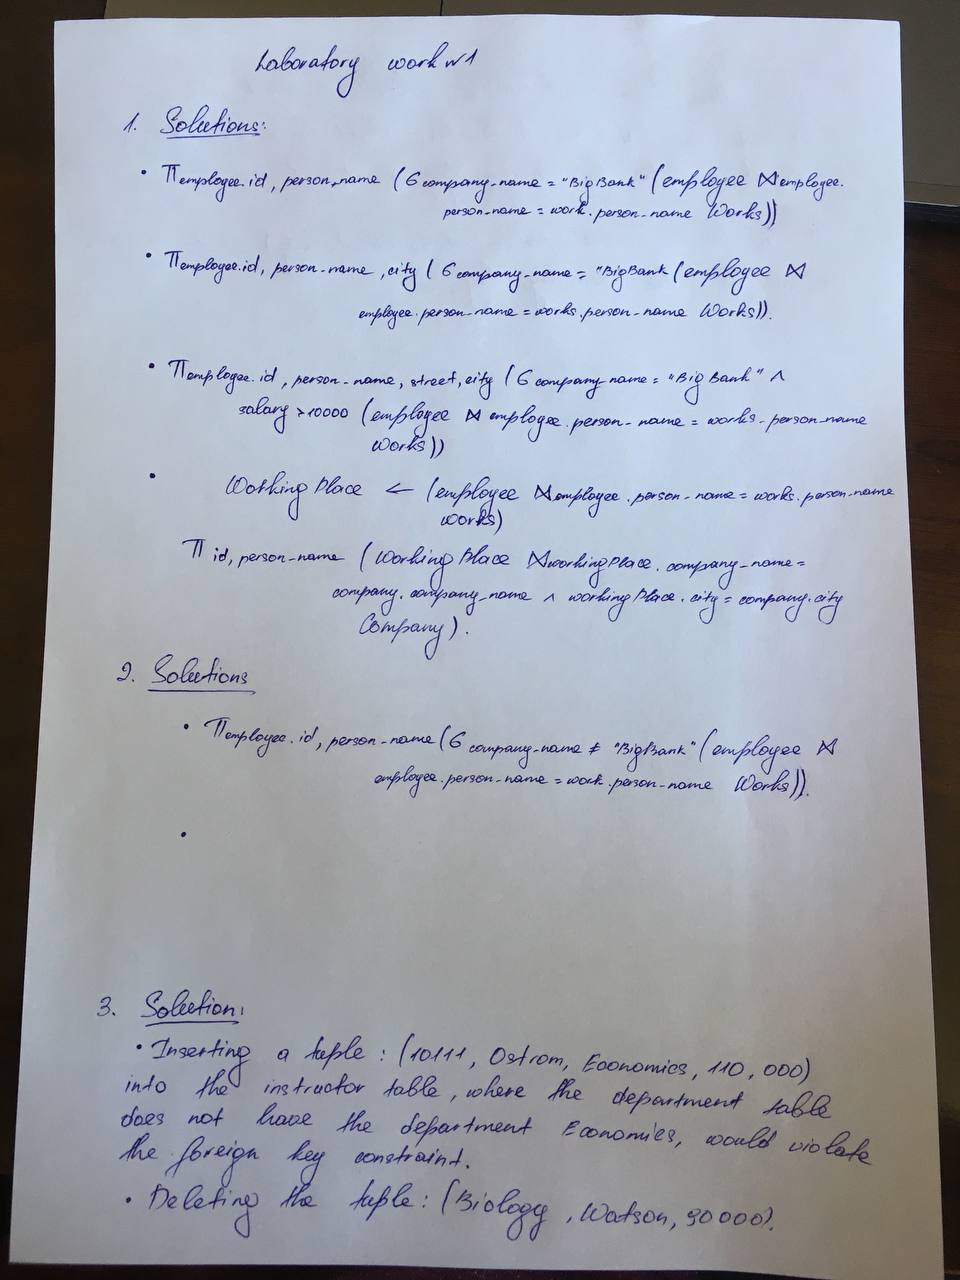 Laboratory work N1
1. Solutions:
• Πemployee.id, person_name (σ company_name = "BigBank" (employee ⋈ employee.
person_name = work.person_name Works))
• Πemployee.id, person_name, city (σ company_name = "BigBank (employee ⋈
employee.person_name = works.person_name Works)).
• Πemployee.id, person_name, street, city (σ company_name = "BigBank" ∧
salary > 10000 (employee ⋈ employee.person_name = works.person_name
Works))
• WorkingPlace ← (employee ⋈ employee.person_name = works.person_name
works)
Π id, person_name (WorkingPlace ⋈ workingPlace.company_name =
company.company_name ∧ workingPlace.city = company.city
Company).
2. Solutions
• Πemployee.id, person_name (σ company_name ≠ "BigBank" (employee ⋈
employee.person_name = work.person_name Works)).
•
3. Solution:
• Inserting a tuple: (10111, Ostrom, Economics, 110,000)
into the instructor table, where the department table
does not have the department Economics, would violate
the foreign key constraint.
• Deleting the tuple: (Biology, Watson, 90000).